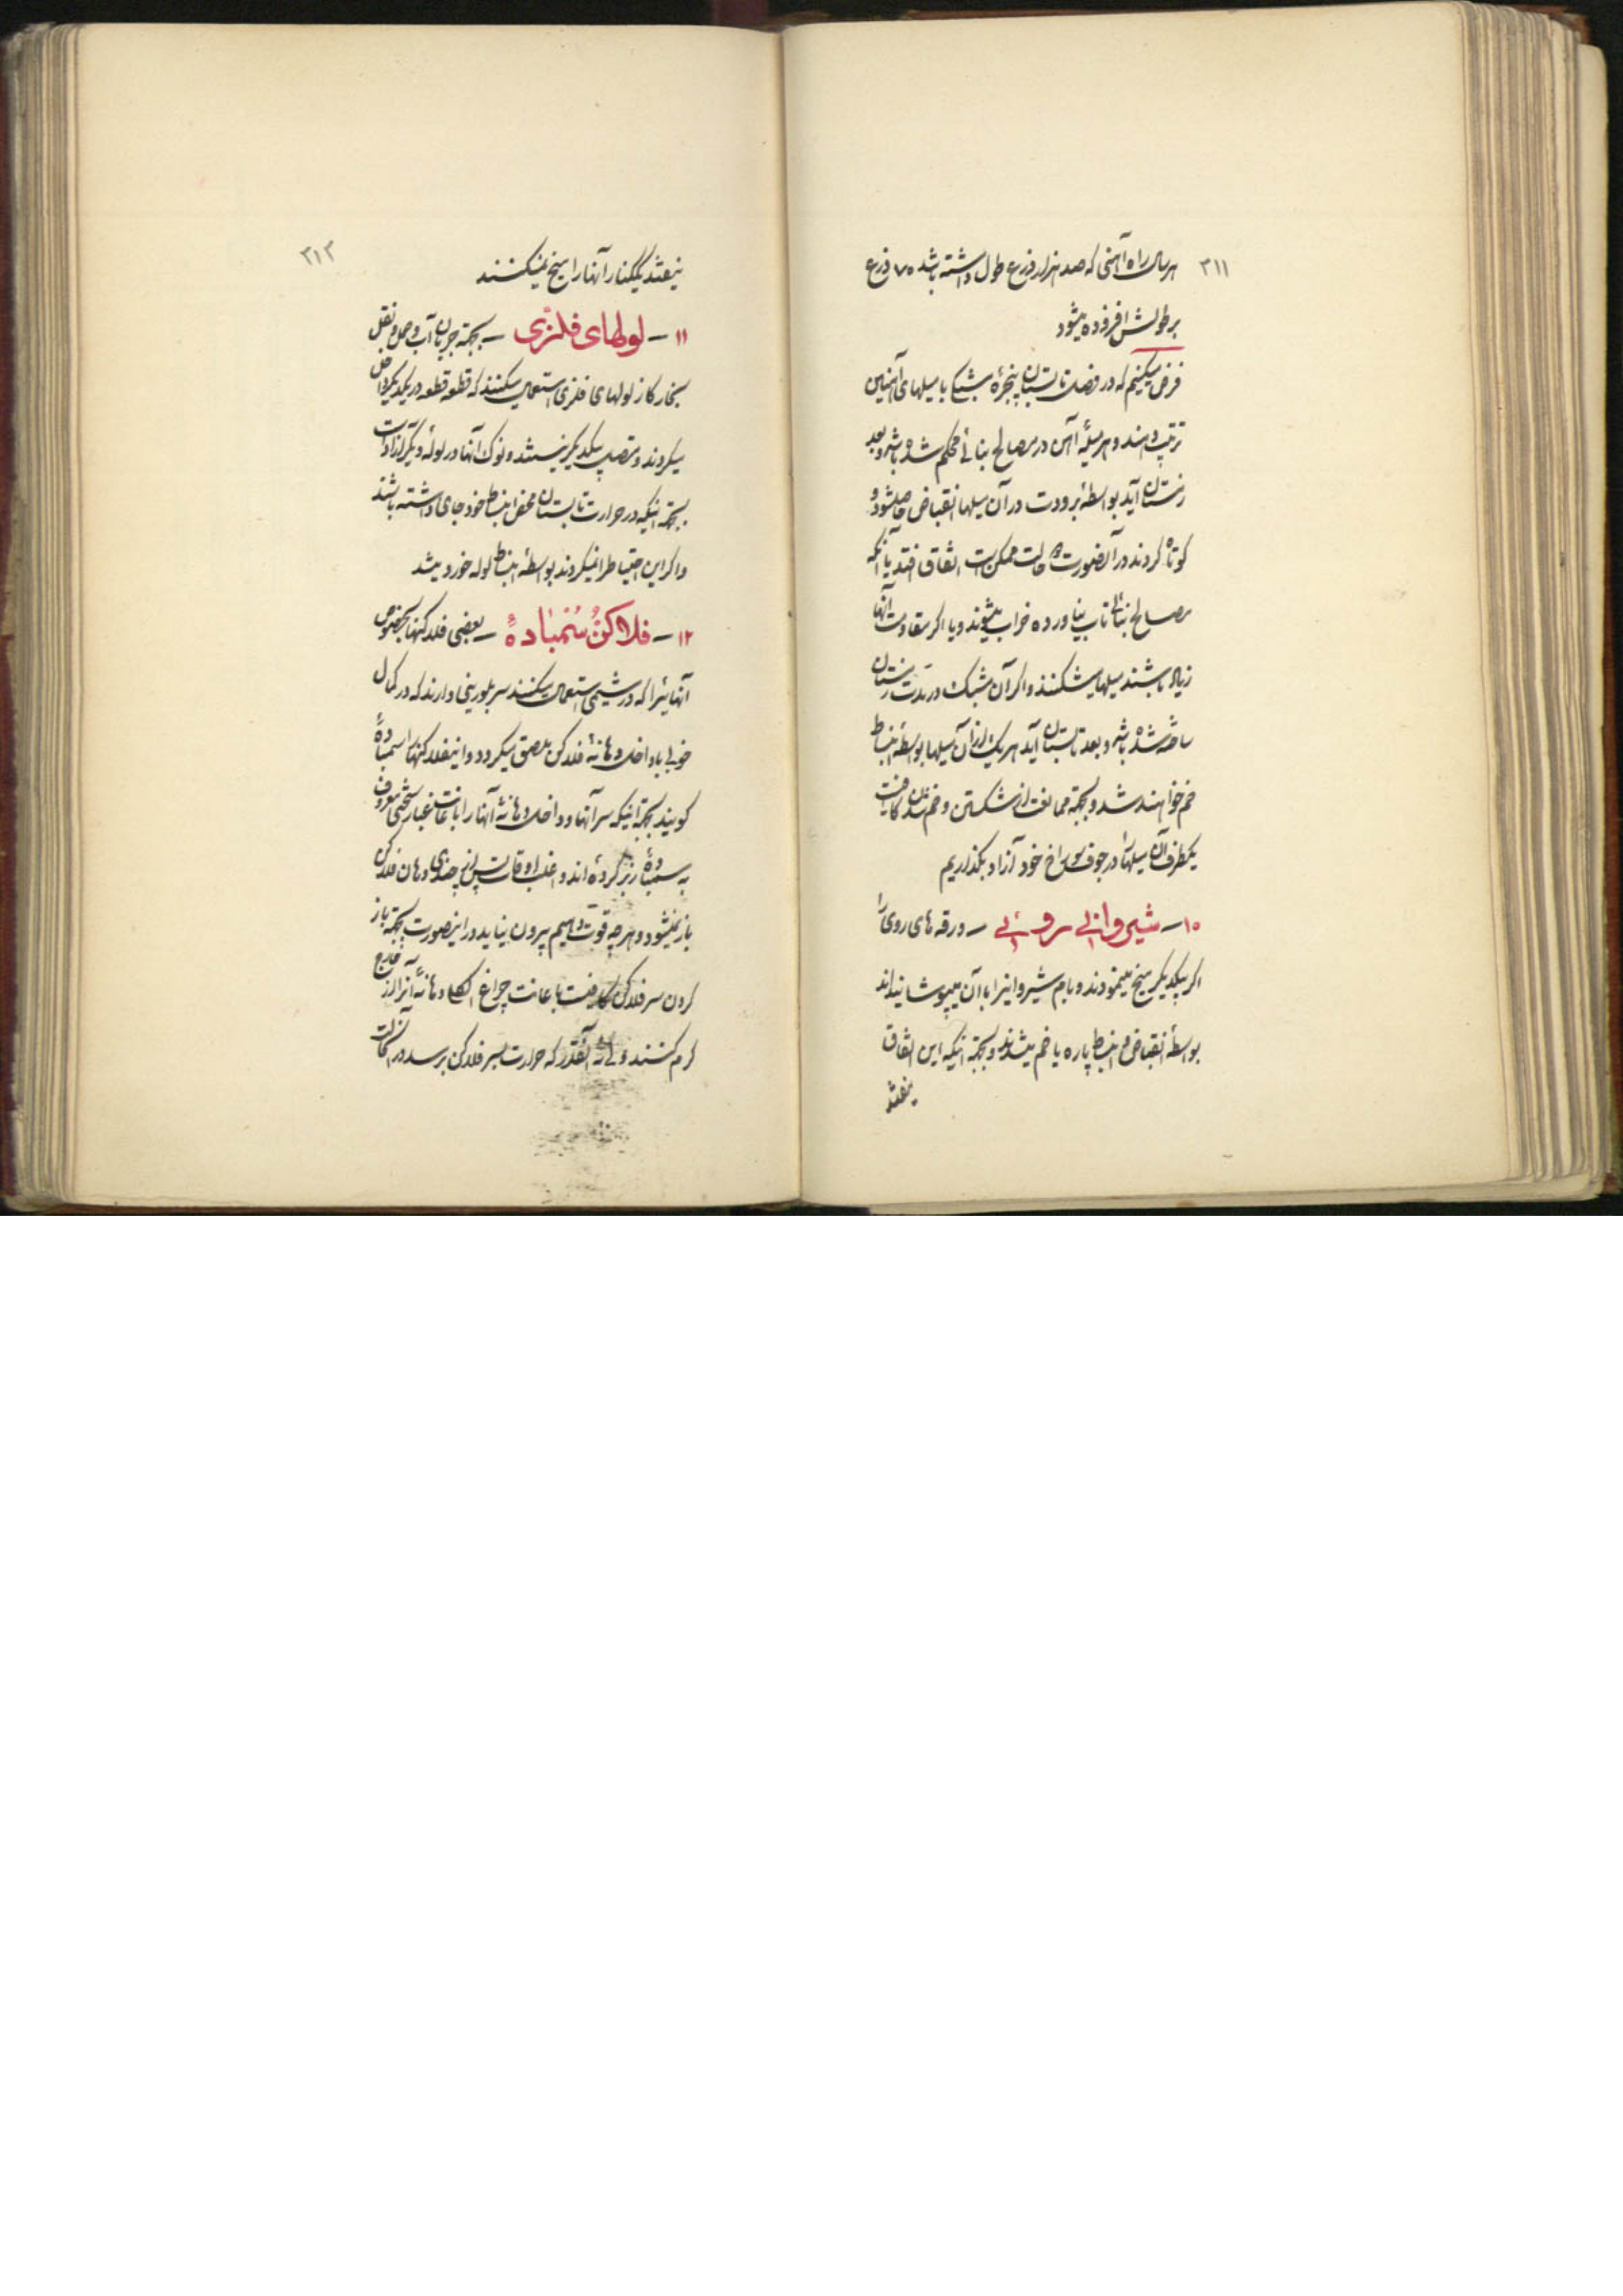 ۲۱۱
هر سال راه آهنی که صد هزار ذرع طول داشته باشد ۷۰ ذرع
بر طولش افزوده میشود
فرض میکنیم که در فصل تابستان پنجرهٔ مشبکی با میلهای آهنین
ترتیب دهند و هر میلهٔ آهن در مصالح بنائی محکم شده باشد و بعد
زمستان آید بواسطهٔ برودت در آن میلها انقباض حاصل شود و
کوتاه گردند در آنصورت دو حالت ممکن است اتفاق افتد یا آنکه
مصالح بنائی تاب نیاورده خراب میشوند و یا اگر مقاومت آنها
زیاد باشند میلها میشکنند و اگر آن مشبک در مدت زمستان
ساخته شده باشد و بعد تابستان آید هر یک از آن میلها بواسطهٔ انبساط
خم خواهند شد و بجهة ممانعت از شکستن و خم شدن کافیست
یکطرف آن میلها را در جوف سوراخ خود آزاد بگذاریم
۱۰ – شیروانی روئی – ورقه های روی را
اگر بیکدیگر میخ مینمودند و بام شیروانیرا با آن میپوشانیدند
بواسطهٔ انقباض و انبساط پاره یا خم میشدند و بجهة اینکه این اتفاق
نیفتد
۲۱۲
نیفتد یککنار آنها را میخ نمیکنند
۱۱ – لولهای فلزی – بجهة جریان آب و حمل و نقل
بخار گاز لولهای فلزی استعمال میکنند که قطعه قطعه در یکدیگر داخل
میگردند و متصل بیکدیگر نیستند و نوک آنها در لولهٔ دیگر آزاد است
بجهة اینکه در حرارت تابستان محض انبساط خود جای داشته باشند
و اگر این احتیاط را نمیکردند بواسطهٔ انبساط لوله خورد میشد
۱۲ – فلاکن سنمبادهٔ – بعضی فلاکنها بخصوص
آنهائیرا که در شیمی استعمال میکنند سر بلورینی دارند که در کمال
خوبی با داخل دهانهٔ فلاکن ملصق میگردد و اینفلاکنها را سمبادهٔ
گویند بجهة اینکه سر آنها و داخل دهانهٔ آنها را باعانت غبار سختی معروف
به سمباده زبر کرده اند و اغلب اوقات پس از چندی دهان فلاکن
باز نمیشود و هر چه قوت دهیم بیرون نیاید در اینصورت بجهة باز
کردن سر فلاکن کافیست باعانت چراغ الکل دهانهٔ آنرا از خارج
گرم کنند ولی نه آنقدر که حرارت بسر فلاکن برسد در آنحالت